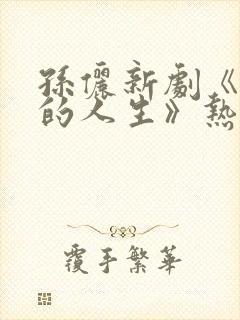 孫儷新劇《
的人生》熱
覆手繁華